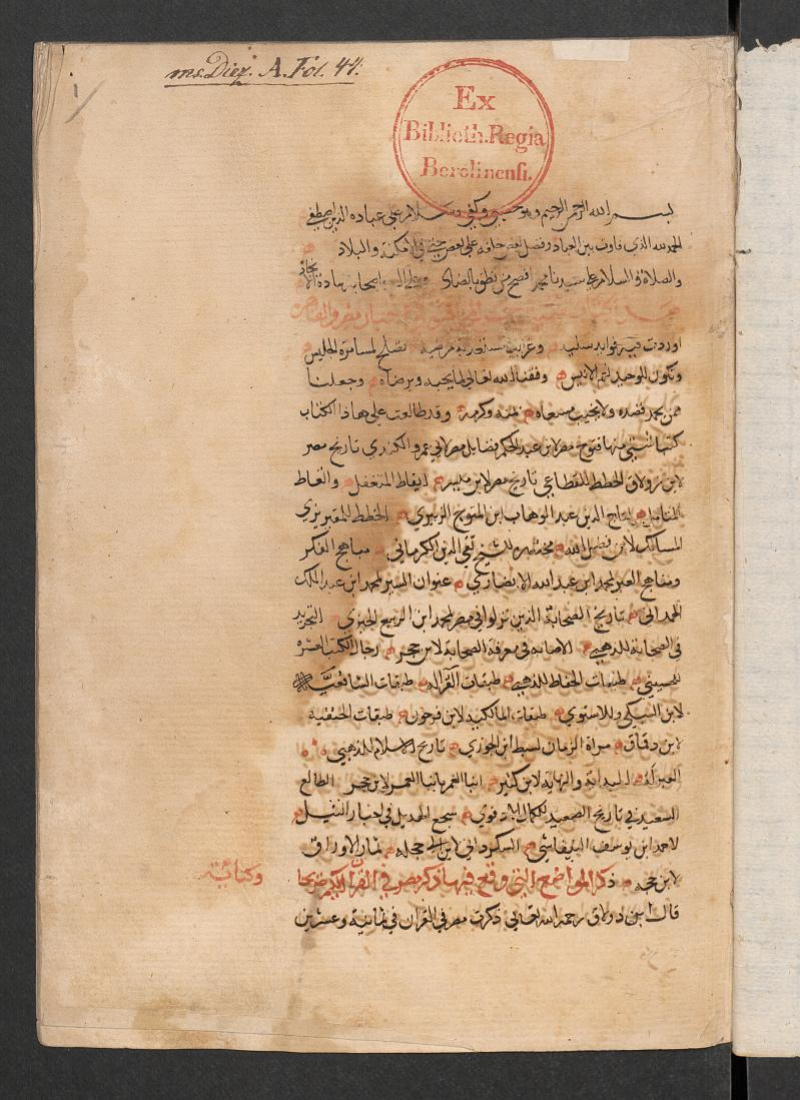 ms. Diez. A. Fol. 44.
Ex
Biblioth. Regia
Berolinensi.
بسم الله الرحمن الرحيم وهو حسبي وكفى وسلام على عباده الذين اصطفى
الحمد لله الذي فاوت بين العباد وفضل بعض خلقه على بعض حتى في الامكنة والبلاد
والصلاة والسلام على سيدنا محمد افصح من نطق بالضاد وعلى اله واصحابه
اوردت فيه فوايد سنية وغرايب تصلح لمسامرة الجليس
وتكون للوحيد نعم الانيس وفقنا الله تعالى لما يحبه ويرضاه وجعلنا
ممن يحمد قصده ولا يخيب مسعاه بمنه وكرمه وقد طالعت على هاذا الكتاب
كتبا شتى منها فتوح مصر لابن عبد الحكم فضايل مصر لابي عمرو الكندي تاريخ مصر
لابن زولاق الخطط للقضاعي تاريخ مصر لابن ميسر ايقاظ المتغفل واتعاظ
المتامل لتاج الدين عبد الوهاب ابن المتوج الزبيري الخطط للمقريزي
المسالك لابن فضل الله مختصره للشيخ تقي الدين الكرماني مباهج الفكر
ومناهج العبر لمحمد ابن عبد الله الانصاري عنوان السير لمحمد ابن عبد الملك
الهمداني تاريخ الصحابة الذين نزلوا في مصر لمحمد ابن الربيع الجيزي التجريد
في الصحابة للذهبي الاصابة في معرفة الصحابة لابن حجر رجال الكتب العشرة
للحسيني طبقات الحفاظ للذهبي طبقات القرا له طبقات الشافعية
لابن السبكي وللاسنوي طبقات المالكية لابن فرحون طبقات الحنفية
لابن دقاق مراة الزمان لسبط ابن الجوزي تاريخ الاسلام للذهبي
العبر له البداية والنهاية لابن كثير انبا الغمر بانبا العمر لابن حجر الطالع
السعيد في تاريخ الصعيد للكمال الادفوي سجع الهديل في اخبار النيل
لاحمد ابن يوسف التيفاشي السكردان لابن ابي حجله ثمار الاوراق
لابن حجه ذكر المواضع التي وقع فيها ذكر مصر في القران الكريم صريحا
وكناية
قال ابن زولاق رحمه الله تعالى ذكرت مصر في القران في ثمانية وعشرين